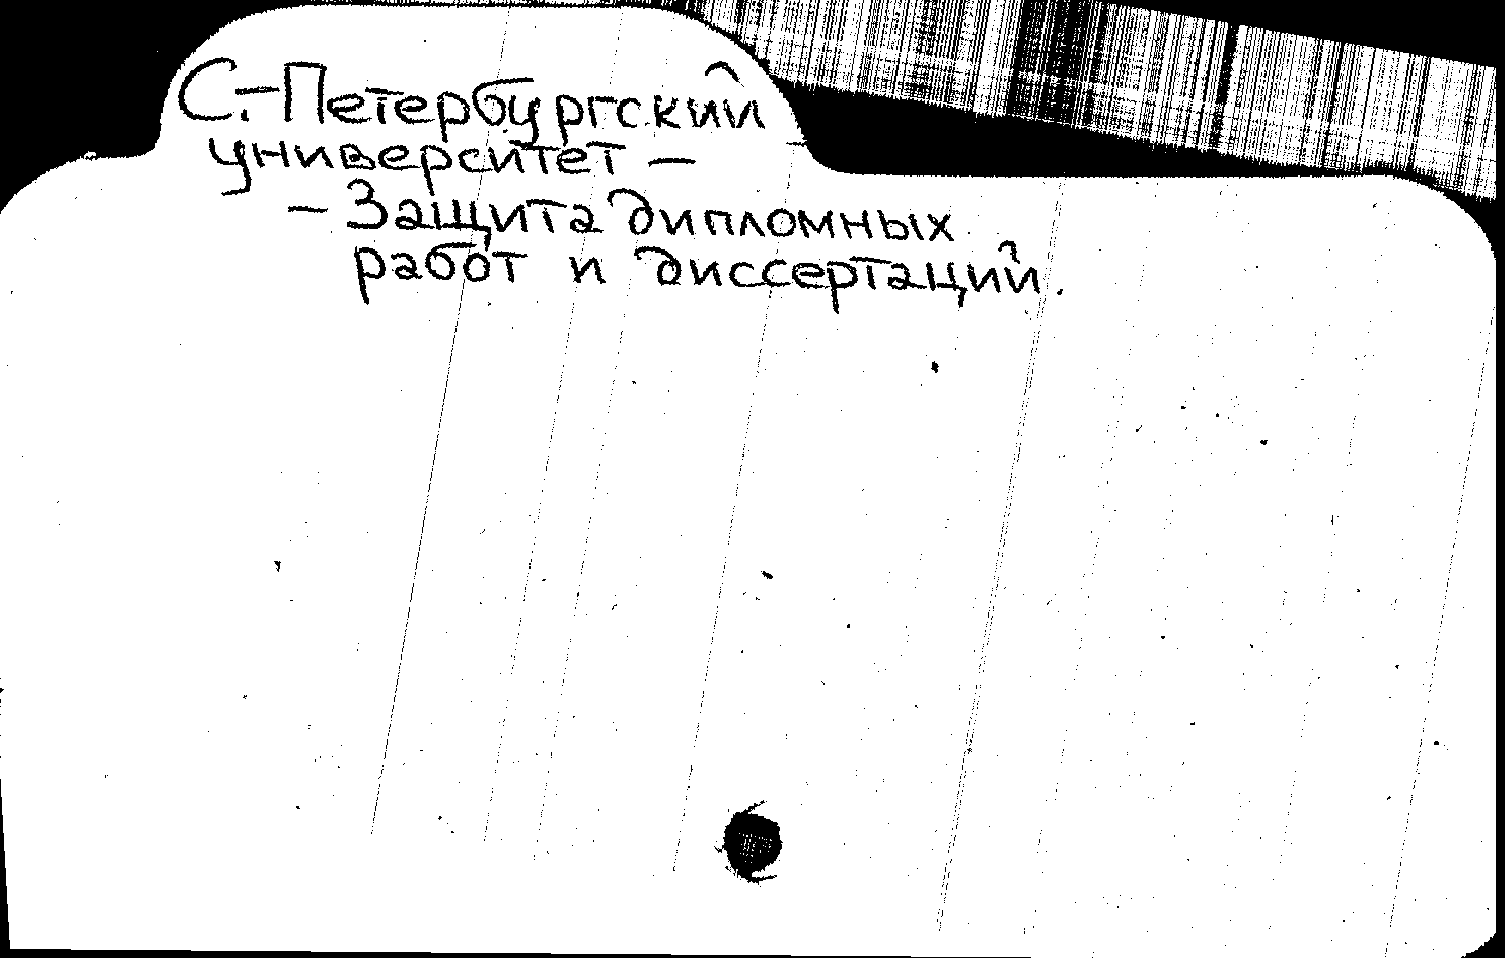 С.-Петербургский
университет –
– Защита дипломных
работ и диссертаций.